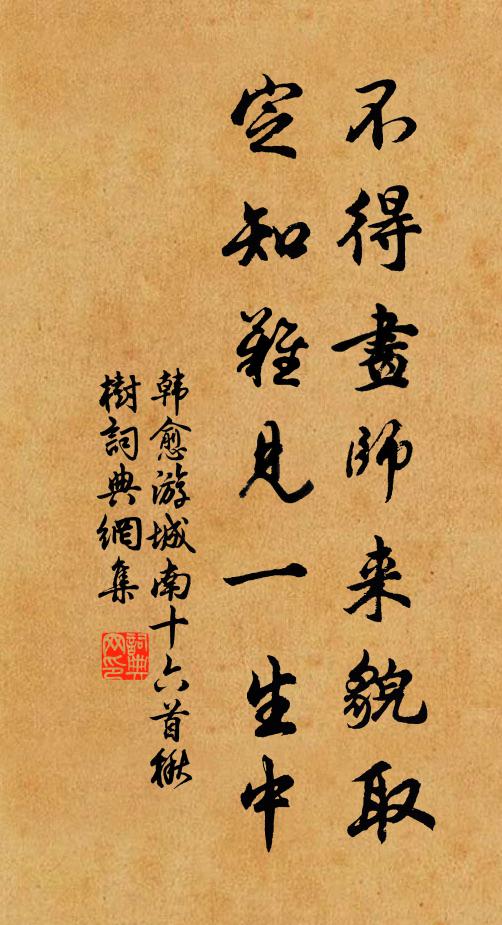 不得畫師来貌取
定知難見一生中
韩愈游城南十六首楸
樹詞典網集
詞典
网印